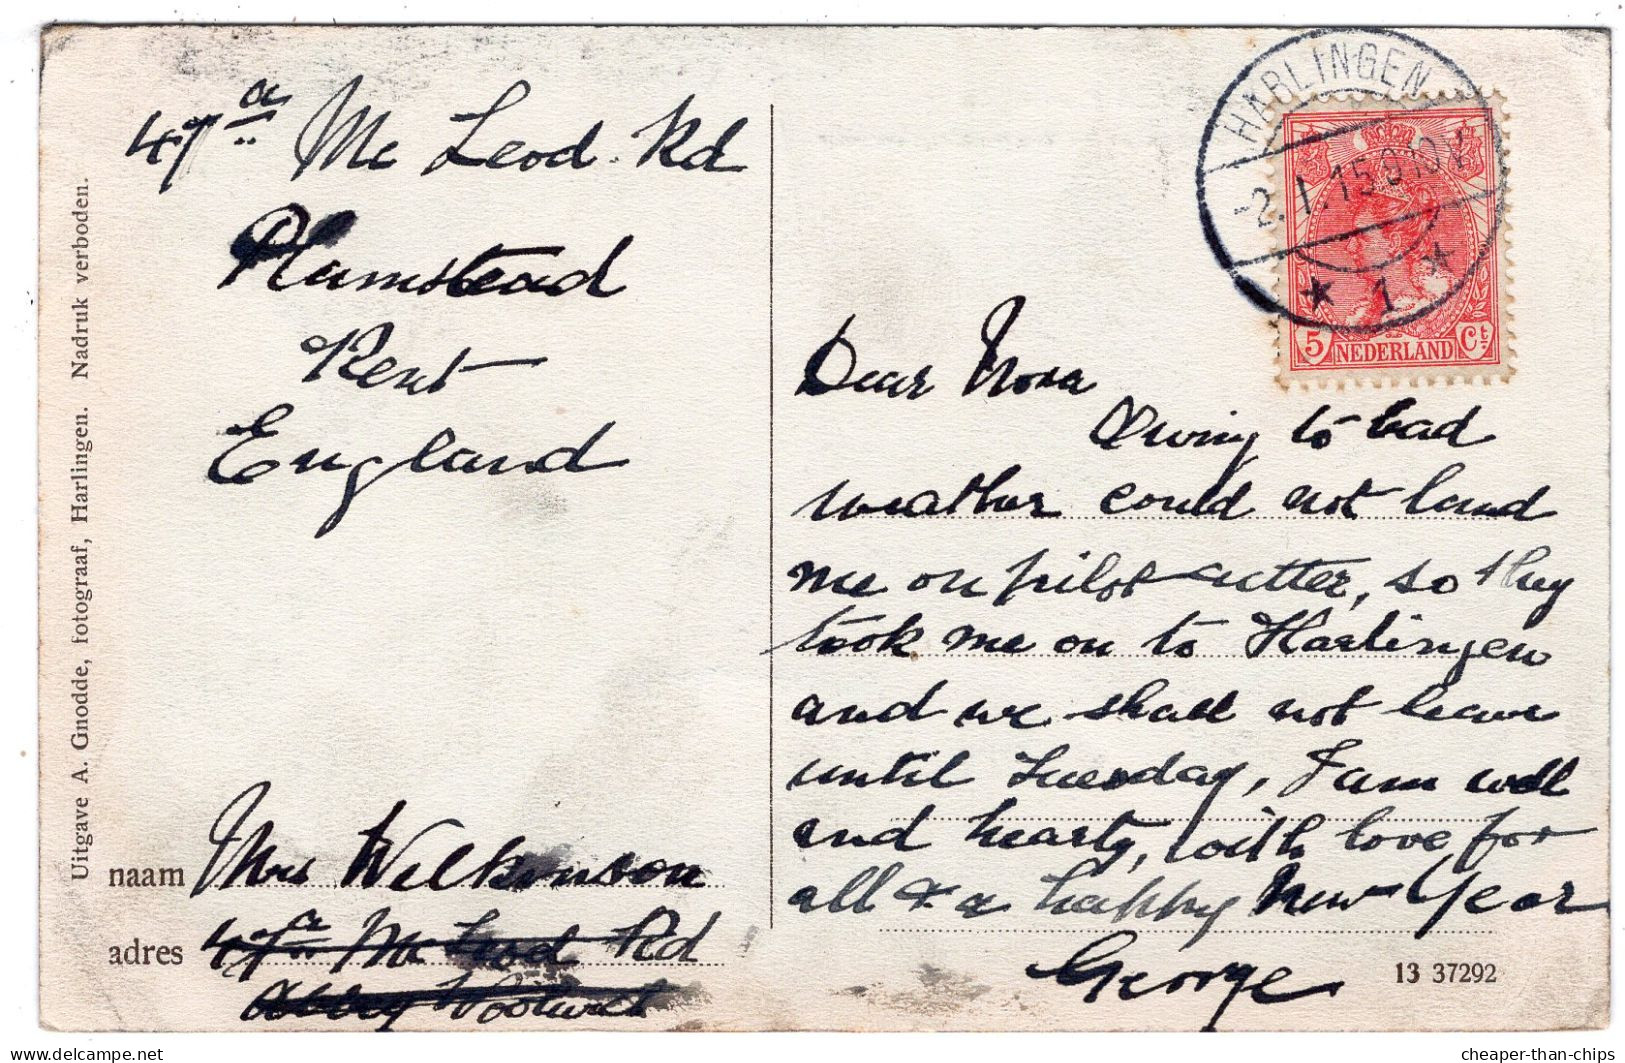 47a Mc Leod Rd
Plumstead
Kent
England
Mrs Wilkinson
naam
adres 47a Mc Leod Rd
Abbey Woolwich
Uitgave A. Gnodde, fotograaf, Harlingen. Nadruk verboden.
HARLINGEN
-2.1.15.9-10V
* 1 *
5 NEDERLAND Ct
Dear Nora
Owing to bad
weather could not land
me on pilot cutter, so they
took me on to Harlingen
and we shall not leave
until Tuesday, I am well
and hearty, with love for
all & a happy New Year
George
13 37292
cheaper-than-chips
www.delcampe.net